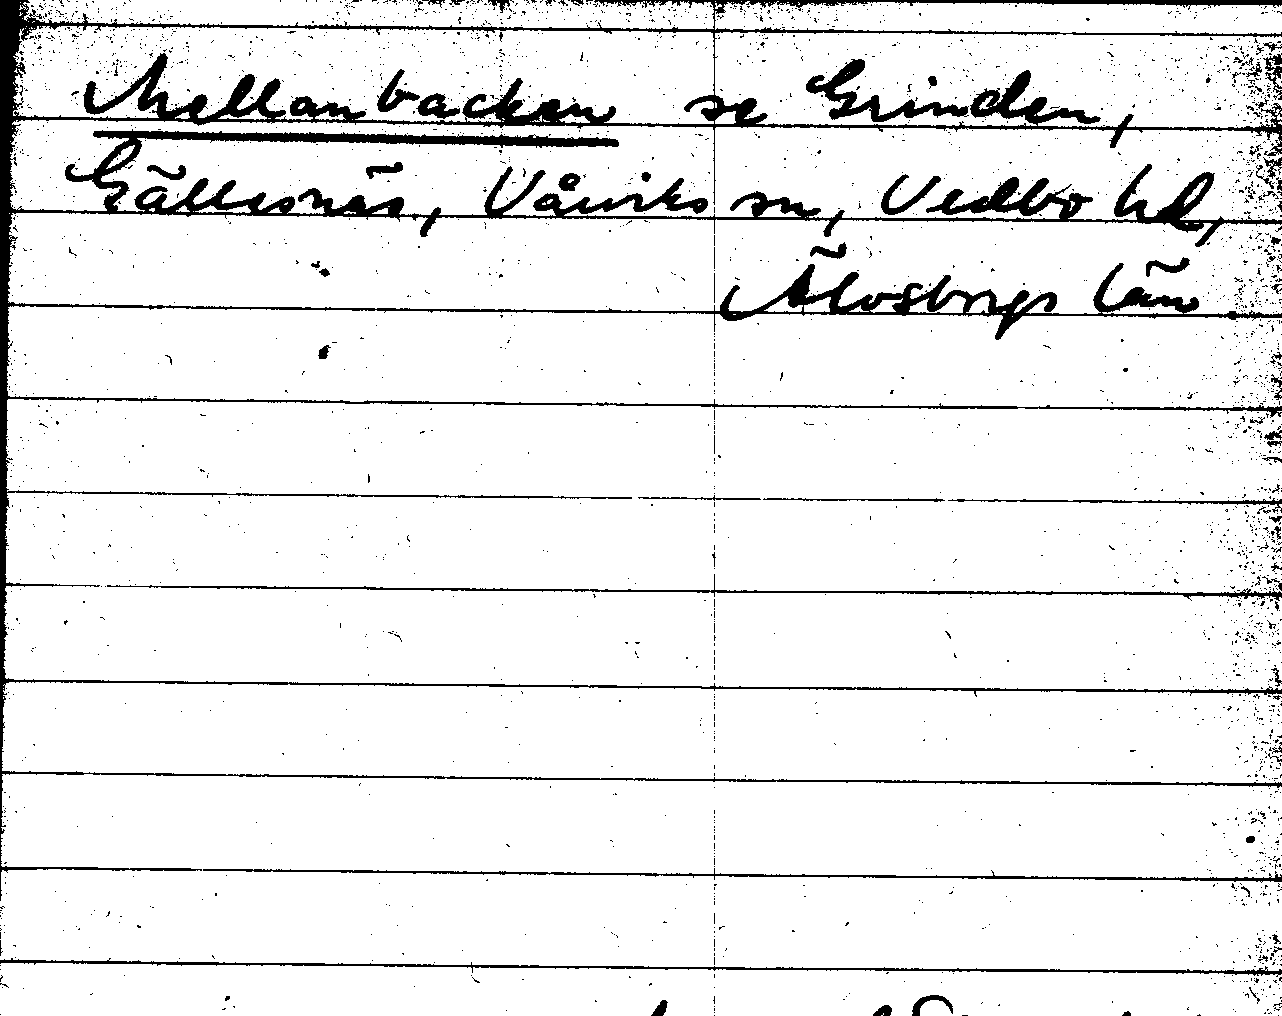 Mellanbacken se Grinden,
Gällesnäs, Vårviks sn, Vedbo hd,
Älvsborgs län.